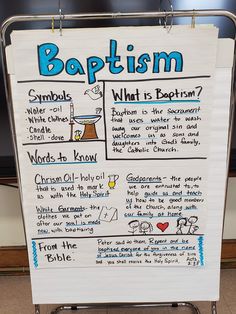 Baptism
Symbols
Water - oil
White clothes
Candle
Shell - dove
What is Baptism?
Baptism is the Sacrament
that uses water to wash
away our original sin and
welcomes us as sons and
daughters into God's family,
the Catholic Church.
Words to Know
Chrism Oil - holy oil
that is used to mark
us with the Holy Spirit
White Garments - the white
clothes we put on
after our soul is made
new with baptising
Godparents - the people
we are entrusted to, to
help guide us and teach
us how to be good members
of the Church, along with
our family at home
From the
Bible:
Peter said to them, Repent and be
baptised everyone of you in the name
of Jesus Christ for the forgiveness of sins
and you shall receive the Holy Spirit.
Acts
2:38